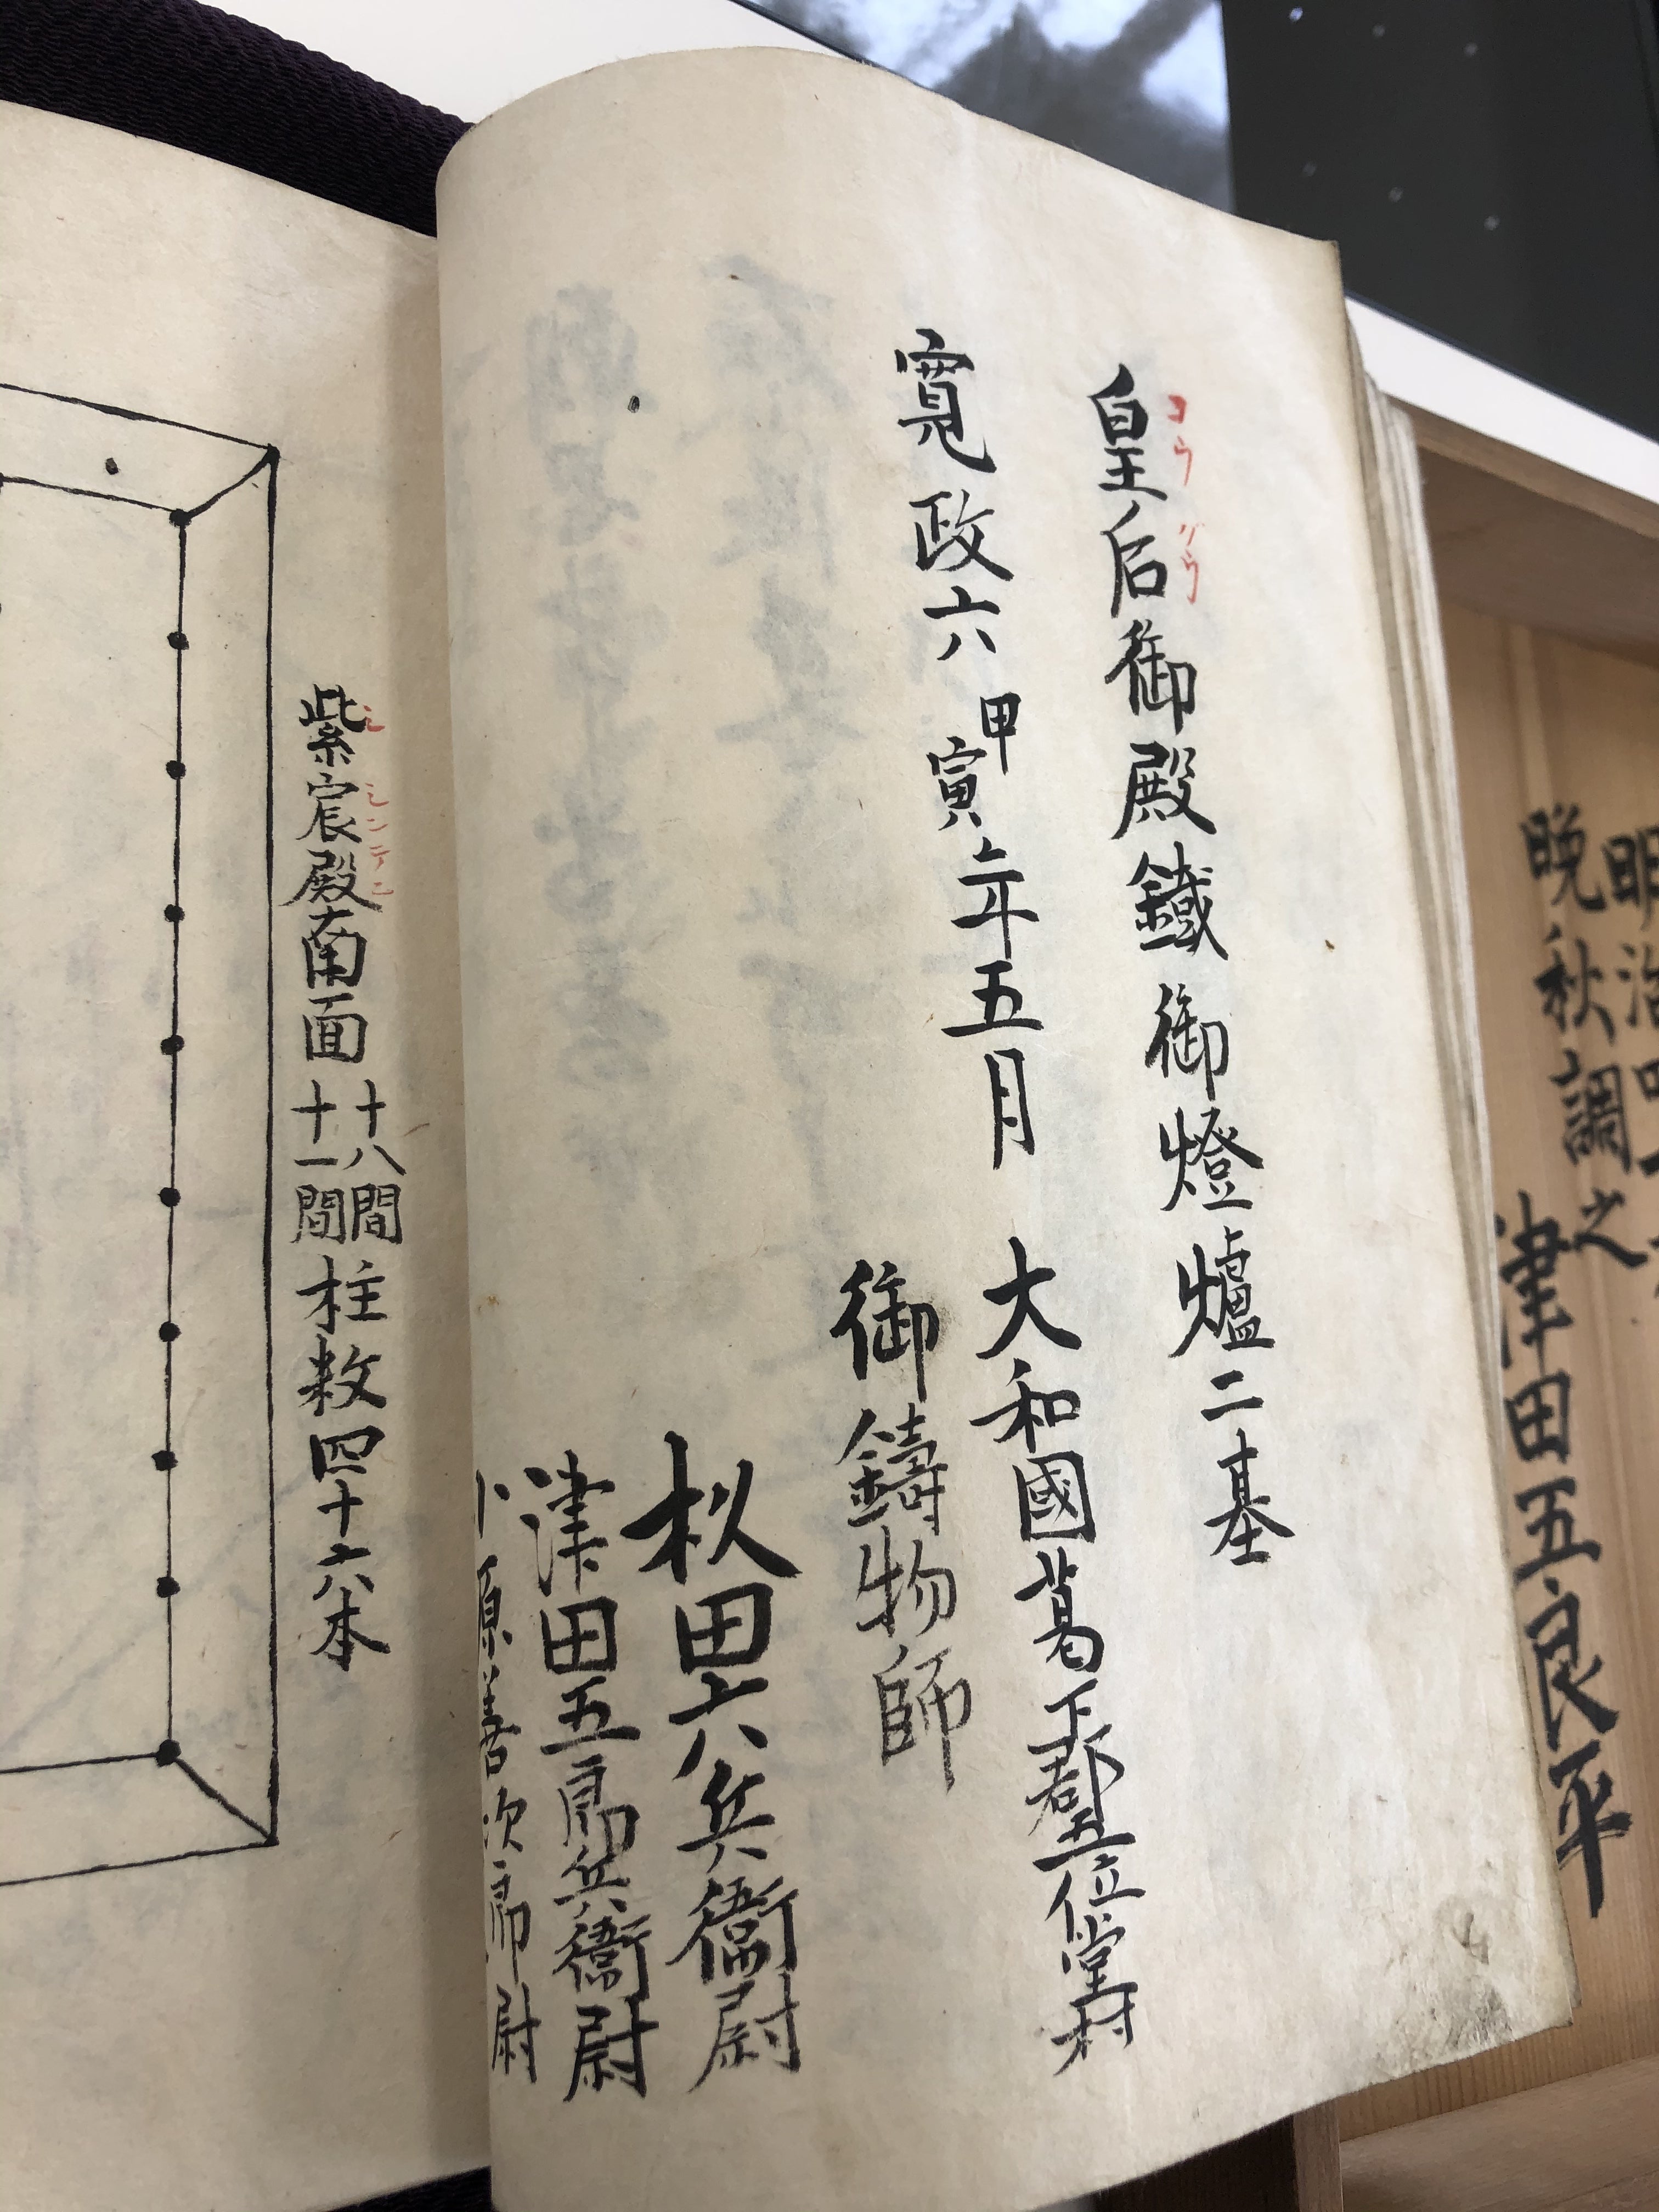 皇后御殿鐵御燈爐二基
コウグウ
寛政六甲寅年五月
大和國葛下郡五位堂村
御鑄物師
杦田六兵衞尉
津田五郎兵衞尉
小原善次郎尉
紫宸殿南面十八間十一間柱数四十六本
シシンデン
明治
晩秋調之
津田五良平